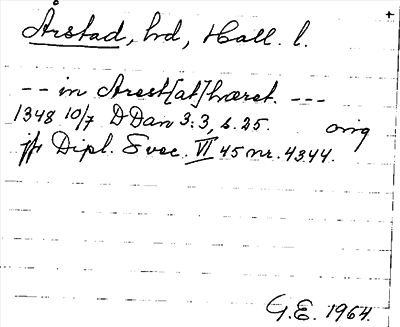 Årstad, hd, Hall. l.
-- in Arest[at]hæret. ---
1348 10/7 DDan 3:3, s. 25. orig
jfr Dipl. Svec. VI 45 nr. 4344.
G.E. 1964.